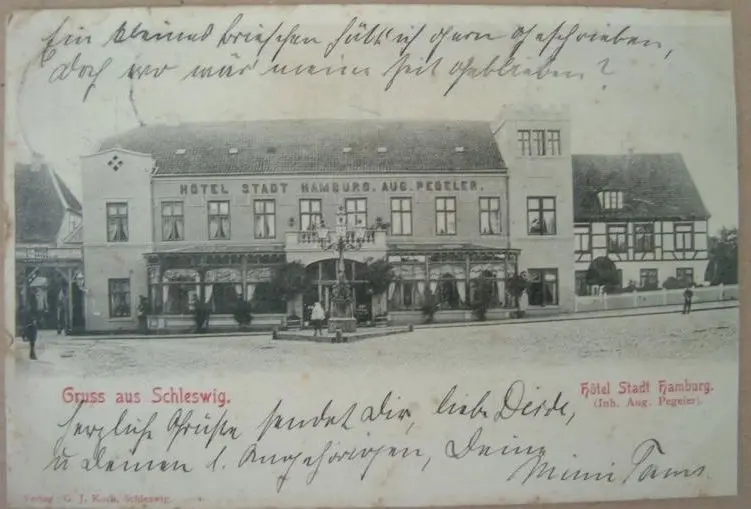 Ein kleines Briefchen hätt' ich gern geschrieben,
Doch wo wär' meine Zeit geblieben?
HÔTEL STADT HAMBURG. AUG. PEGELER.
Gruss aus Schleswig.
Hôtel Stadt Hamburg.
(Inh. Aug. Pegeler).
herzliche Grüße sendet Dir, liebe
u deinen l. Angehörigen, Deine
Mimi
Verlag: G. J. Koch, Schleswig.